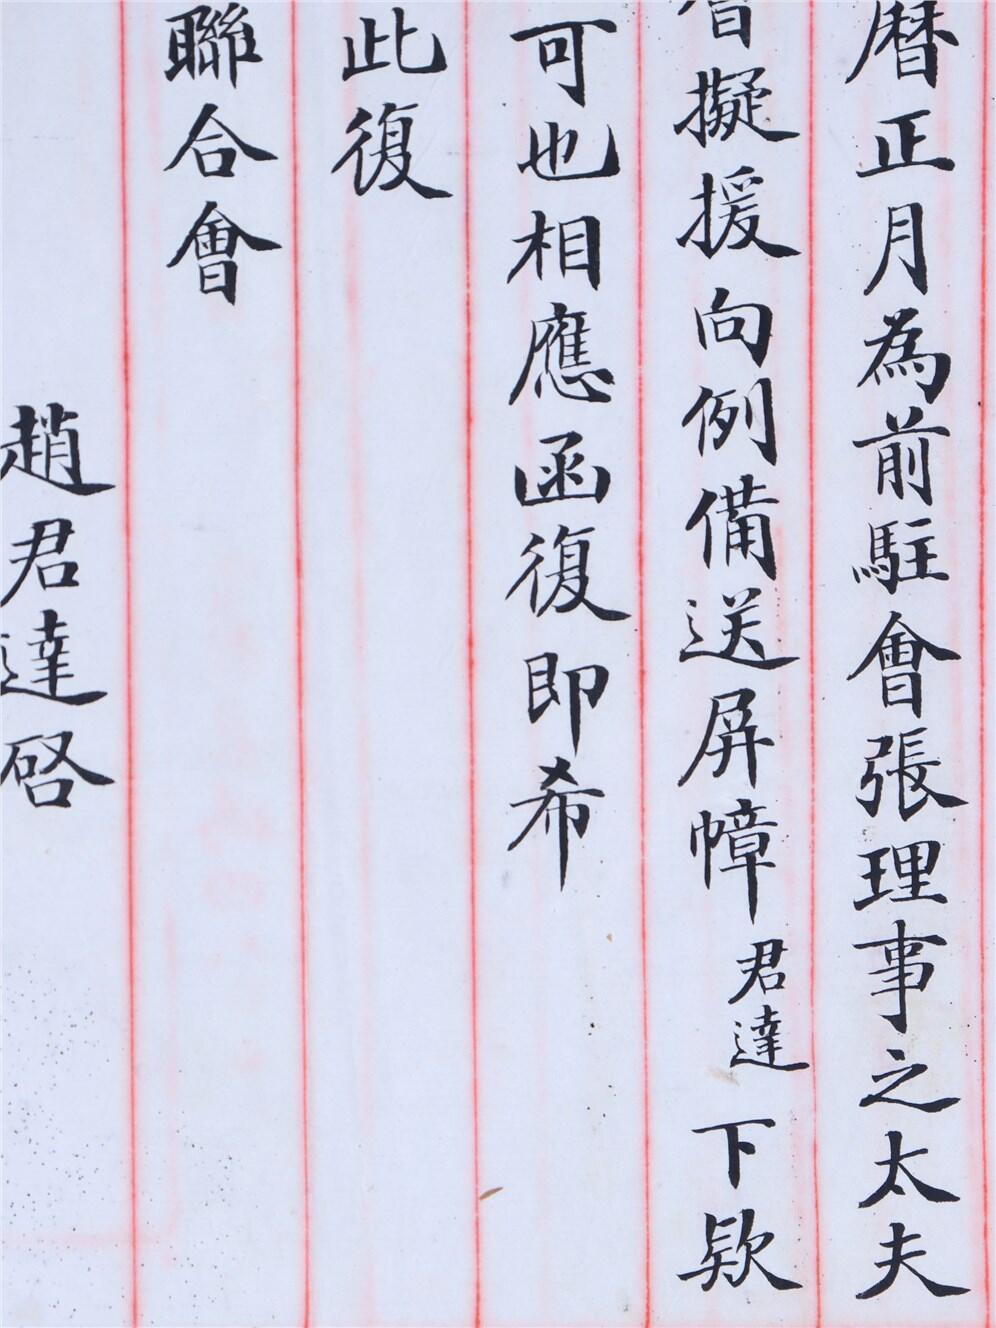 曆正月為前駐會張理事之太夫
擬援向例備送屏幛君達下款
可也相應函復即希
此復
聯合會
趙君達啓